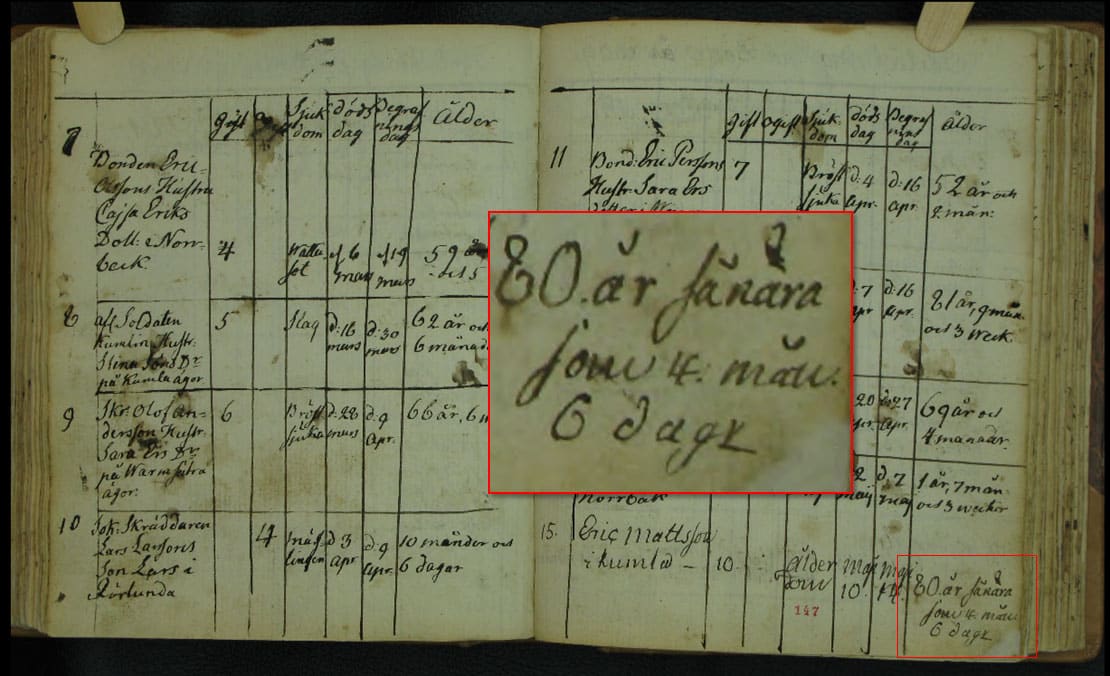 gift
Sjuk
dom
döds
dag
Begraf
nings
dag
Ålder
7
Bonden Eric
Olssons Hustru
Cajsa Eriks
Dott: i Norr-
beck.
4
Wattu-
sot
d. 6
mars
d. 19
mars
59 år
och 5
8
afl. Soldaten
Kumlin Hustr:
Stina Jöns Dr
på Kumla ägor
5
Slag
d: 16
mars
d: 30
mars
62 år och
6 månad
9
Skr. Olof An-
dersson Hustr.
Sara Ers Dr
på Warmsätra
ägor.
6
Bröst
sjuka
d: 28
mars
d: 9
Apr.
66 år, 6 m
10
Sok: Skräddaren
Lars Larssons
Son Lars i
Rörlunda
4
mäss
lingen
d 3
apr
d: 9
Apr.
10 månder och
6 dagar
gift
ogift
Sjuk
dom
döds
dag
Begraf
nings
dag
ålder
11
Bond: Eric Perssons
Hustr. Sara Ers
dotter i
7
Bröst
sjuka
d: 4
Apr.
d: 16
Apr.
52 år och
2 mån:
d: 7
Apr
d: 16
Apr.
81 år, 9 mån
och 3 Weck.
20
apr.
d: 27
Apr.
69 år och
4 månader.
2
maij
d. 7
maij
1 år, 7 mån
och 3 weckor
Norrbäk
15.
Eric Mattsson
i Kumla
10
ålder
dom
Maj
10
Maj
14.
80 år sånära
som 4. mån.
6 dagr
147
80. år sånära
som 4. mån.
6 dagr